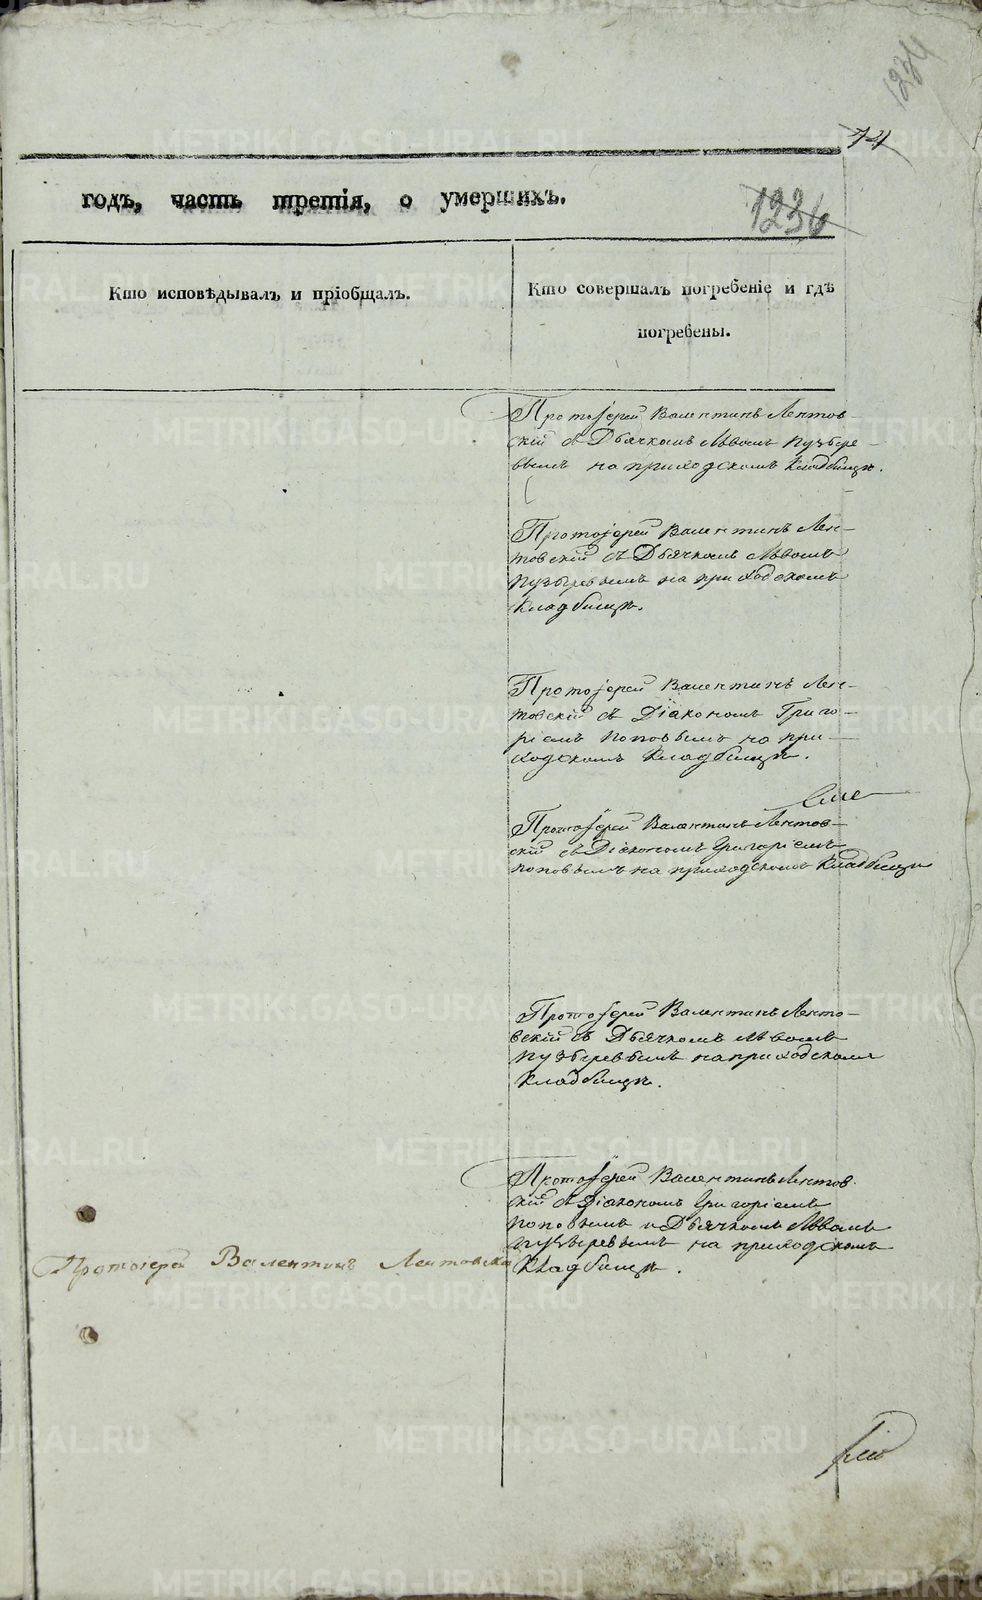 1234
74
годъ, часть третія, о умершихъ.
1236
Кто исповѣдывалъ и пріобщалъ.
Кто совершалъ погребеніе и гдѣ
погребены.
Протоіерей Валентинъ Лентов-
скій съ Дьячкомъ Львомъ Пузыре-
вымъ на приходскомъ Кладбищѣ.
Протоіерей Валентинъ Лен-
товскій съ Дьячкомъ Львомъ
Пузыревымъ на приходскомъ
Кладбищѣ.
Протоіерей Валентинъ Лен-
товскій съ Діакономъ Григо-
ріемъ Поповымъ на при-
ходскомъ Кладбищѣ.
Протоіерей Валентинъ Лентов-
скій съ Діакономъ Григоріемъ
Поповымъ на приходскомъ Кладбищѣ
Протоіерей Валентинъ Ленто-
вскій съ Дьячкомъ Львомъ
Пузыревымъ на приходскомъ
Кладбищѣ.
Протоіерей Валентинъ Лентов-
скій съ Діакономъ Григоріемъ
Поповымъ и Дьячкомъ Львомъ
Пузыревымъ на приходскомъ
Кладбищѣ.
Протоіерей Валентинъ Лентовскій
METRIKI.GASO-URAL.RU